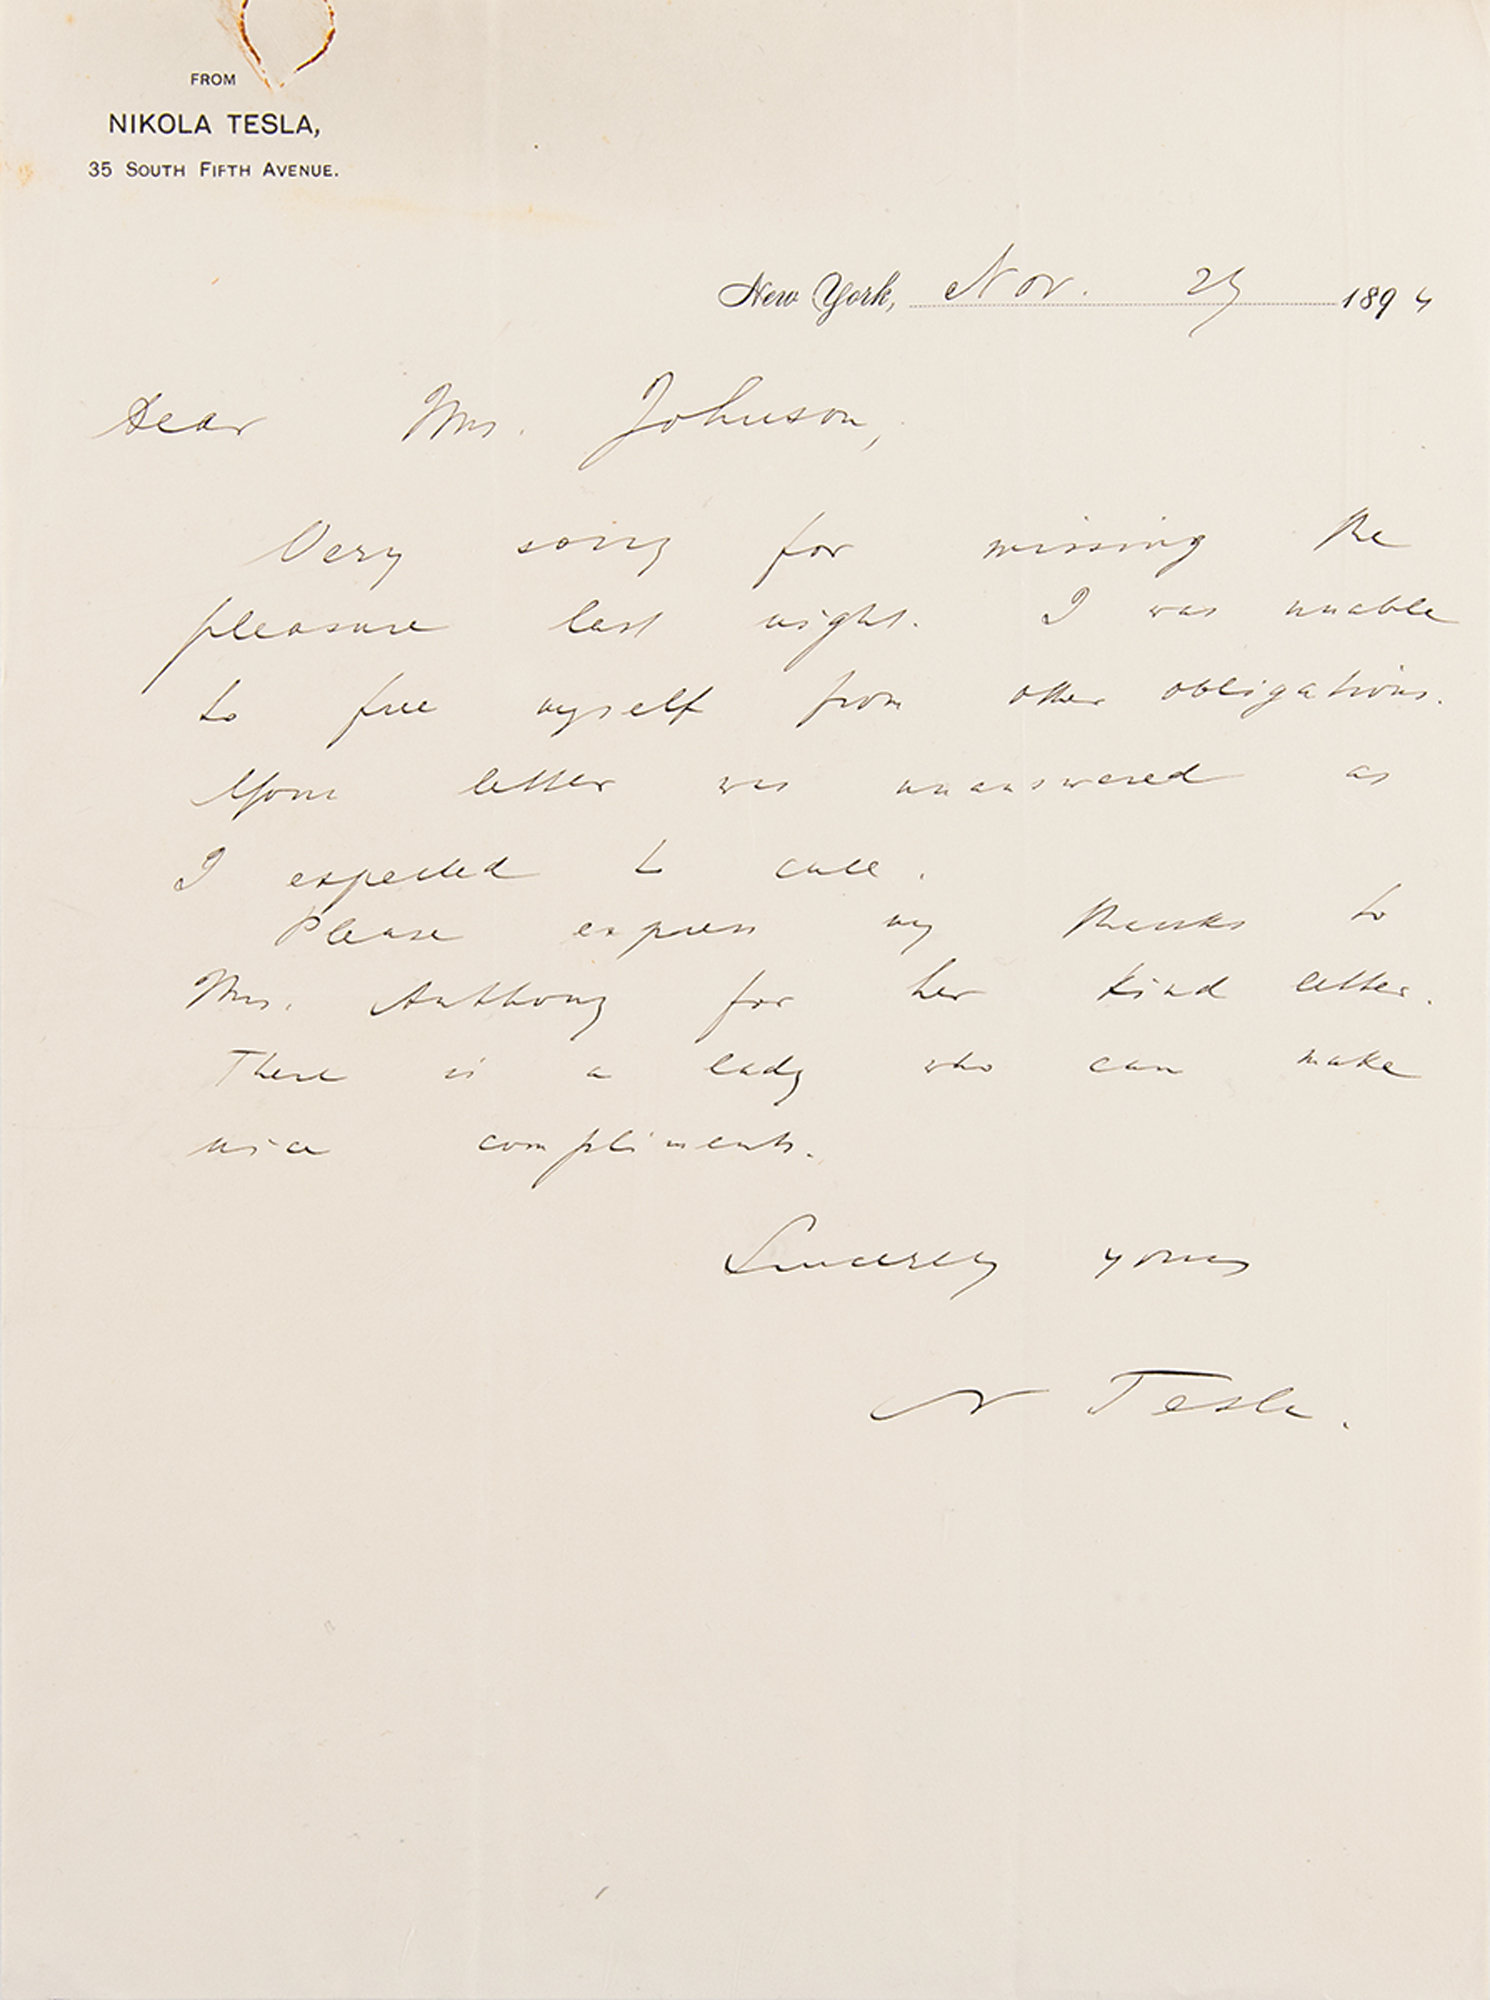 FROM
NIKOLA TESLA,
35 SOUTH FIFTH AVENUE.
New York, Nov. 1894
Dear Mrs. Johnson,
Very sorry for missing the
pleasure last night. I was unable
to free myself from other obligations.
Your letter was unanswered as
I expected to call.
Please express my thanks to
Mrs. Anthony for her kind letter.
There is a lady who can make
nice compliments.
Sincerely yours
N Tesla.